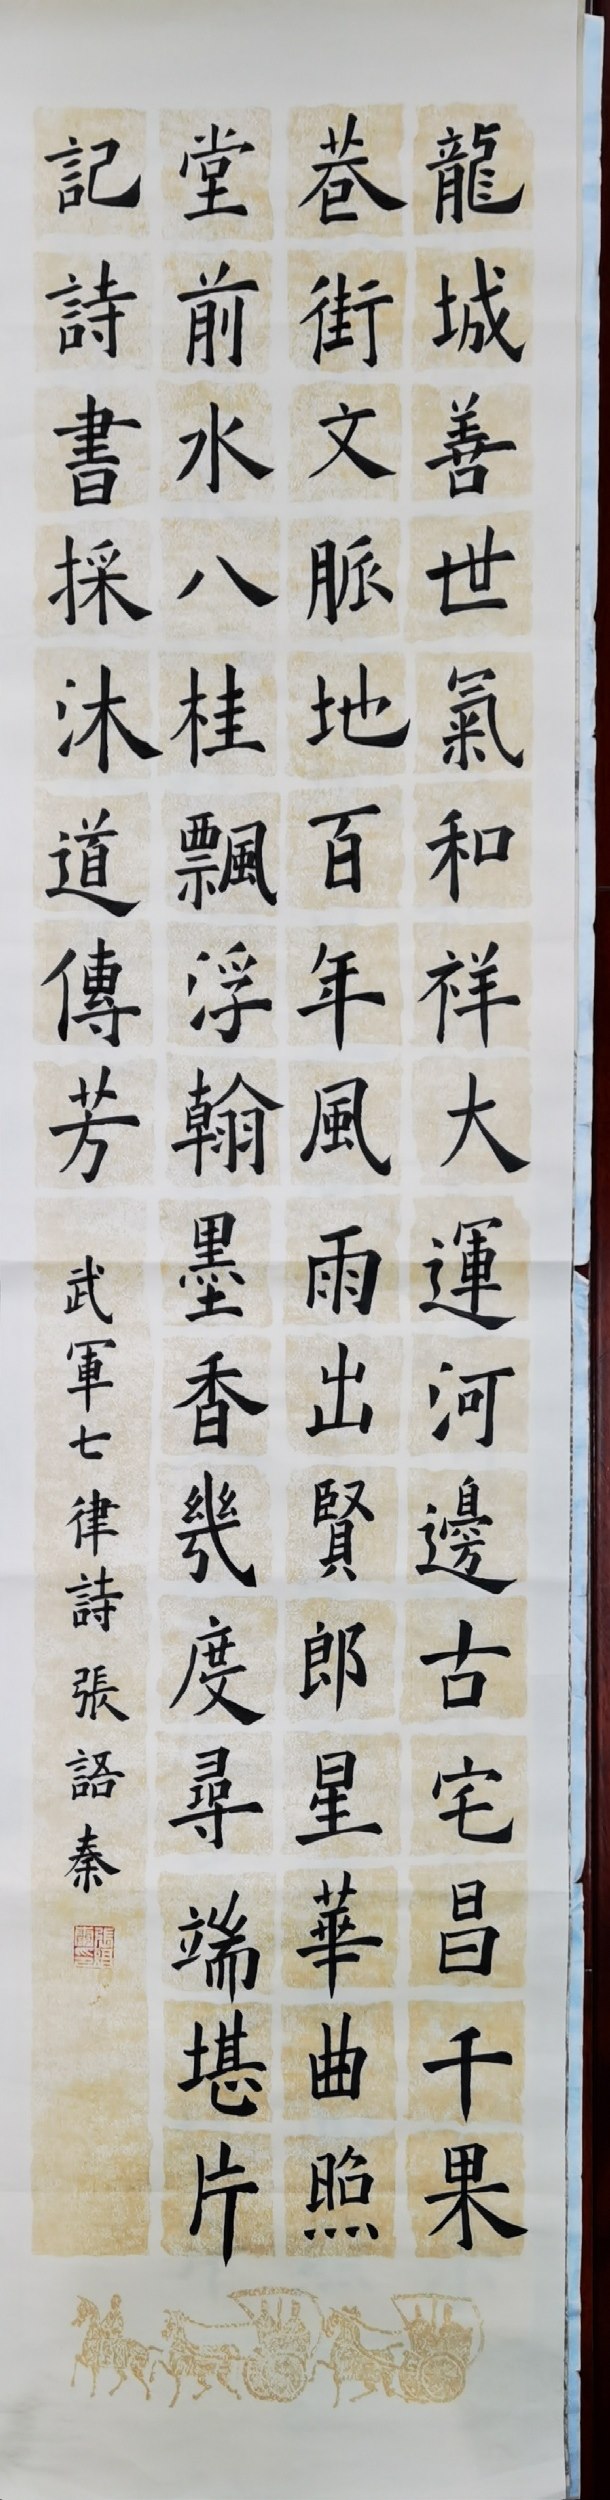 龍城善世氣和祥大運河邊古宅昌千果
巷街文脈地百年風雨出賢郎星華曲照
堂前水八桂飄浮翰墨香幾度尋端堪片
記詩書採沐道傳芳
武軍七律詩張語秦